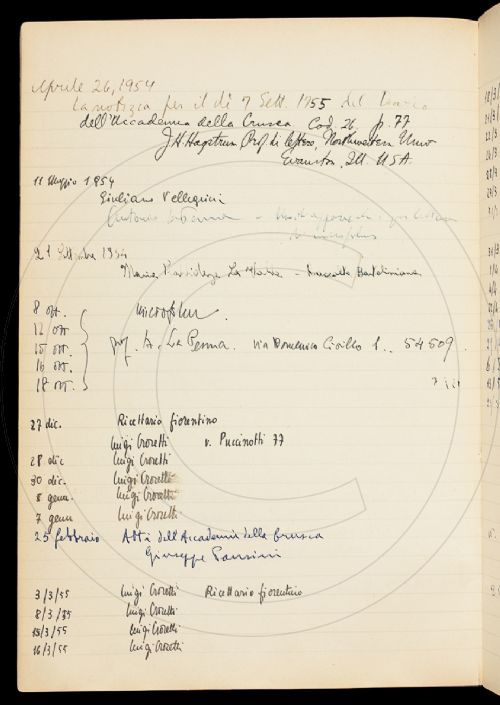 Aprile 26, 1954
La notizia per il dì 7 Sett. 1755 del
dell'Accademia della Crusca Cod. 26. p. 77
J H Hagstrum Prof di lettere, Northwestern Univ
Evanston, Ill. USA.
11 Maggio 1954
Giuliano Pellegrini
Antonio La Penna -
21 Settembre 1954
Maria - Raccolta Bartoliniana
8 ott. Microfilm.
12 ott
15 ott. prof. A. La Penna. via Domenico Cirillo 1. 54509
16 ott.
18 ott.
27 dic. Ricettario fiorentino
Luigi Crocetti v. Puccinotti 77
28 dic Luigi Crocetti
30 dic. Luigi Crocetti
5 genn. Luigi Crocetti
7 genn Luigi Crocetti
25 febbraio Atti dell'Accademia della Crusca
Giuseppe Pansini
3/3/55 Luigi Crocetti Ricettario fiorentino
8/3/55 Luigi Crocetti
15/3/55 Luigi Crocetti
16/3/55 Luigi Crocetti